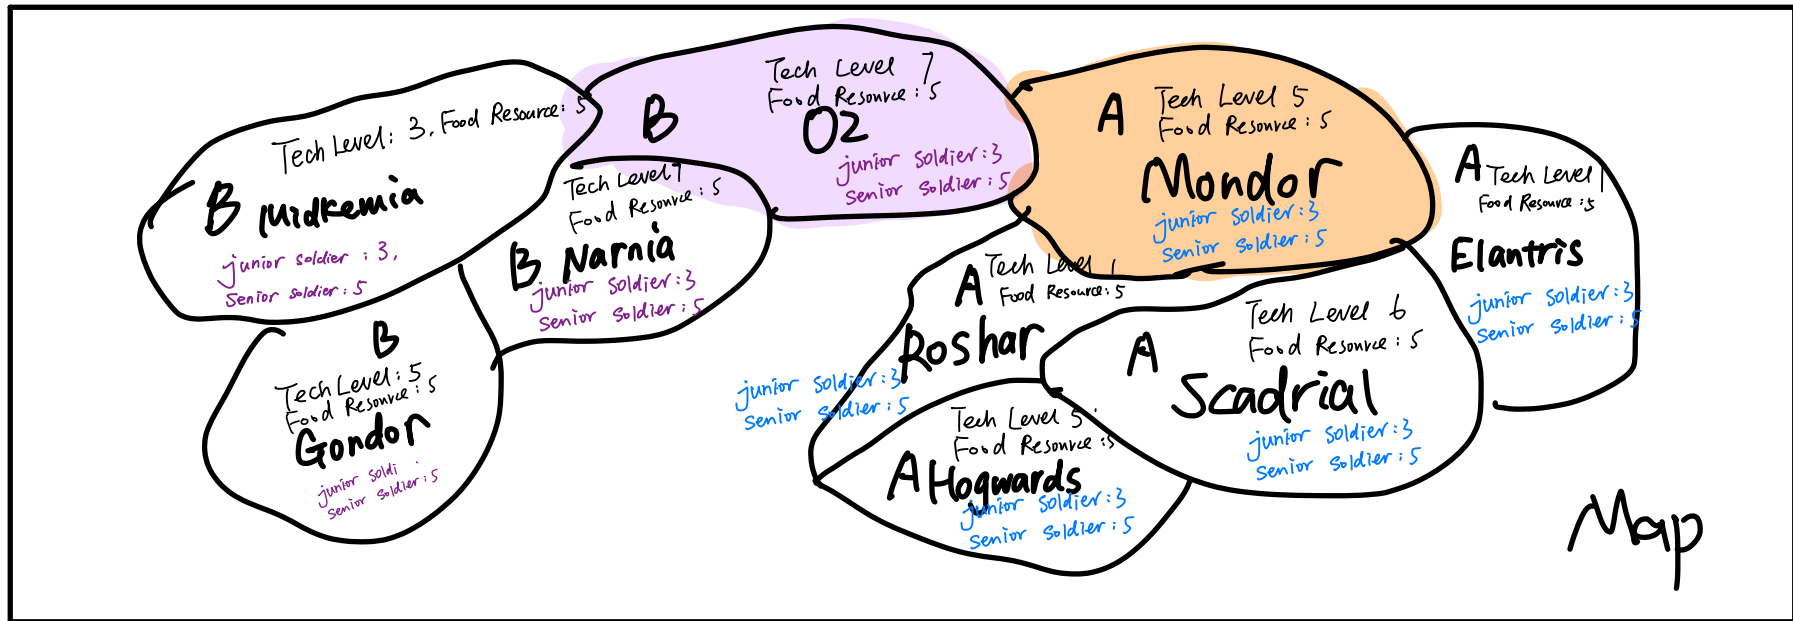 Tech Level: 3, Food Resource: 5
B Midkemia
junior soldier : 3,
senior soldier : 5
B
Tech Level 7
Food Resource : 5
O2
junior soldier : 3
senior soldier : 5
A
Tech Level 5
Food Resource : 5
Mondor
junior soldier : 3
senior soldier : 5
A Tech Level 1
Food Resource : 5
Elantris
junior soldier : 3
senior soldier : 5
Tech Level 7
Food Resource : 5
B Narnia
junior soldier : 3
senior soldier : 5
A Tech Level 1
Food Resource : 5
Roshar
junior soldier : 3
senior soldier : 5
A
Tech Level 6
Food Resource : 5
Scadrial
junior soldier : 3
senior soldier : 5
B
Tech Level: 5
Food Resource : 5
Gondor
junior soldi
senior soldier : 5
Tech Level 5
Food Resource : 5
A Hogwards
junior soldier : 3
senior soldier : 5
Map